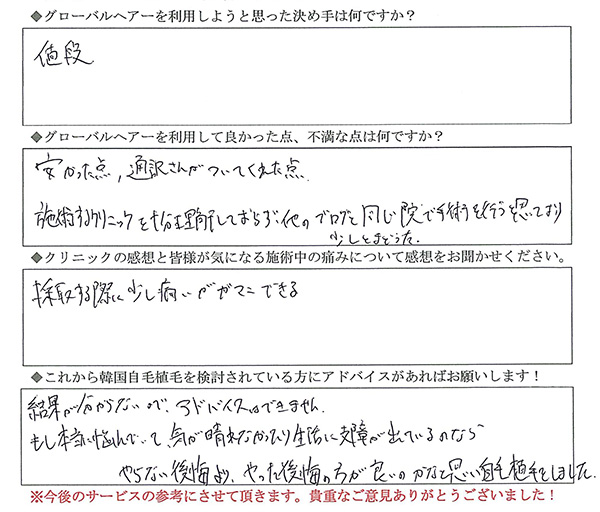 ◆グローバルヘアーを利用しようと思った決め手は何ですか？
値段
◆グローバルヘアーを利用して良かった点、不満な点は何ですか？
安かった点，通訳さんがついてくれた点．
施術するクリニックを十分理解しておらず，他のブログと同じ院で手術を行うと思っており
少しとまどった．
◆クリニックの感想と皆様が気になる施術中の痛みについて感想をお聞かせください。
採取する際に少し痛いがガマンできる
◆これから韓国自毛植毛を検討されている方にアドバイスがあればお願いします！
結果が分からないので，アドバイスはできません．
もし本当に悩んでいて，気が晴れなかったり生活に支障が出ているのなら
やらない後悔より，やった後悔の方が良いのかなと思い自毛植毛をしました．
※今後のサービスの参考にさせて頂きます。貴重なご意見ありがとうございました！